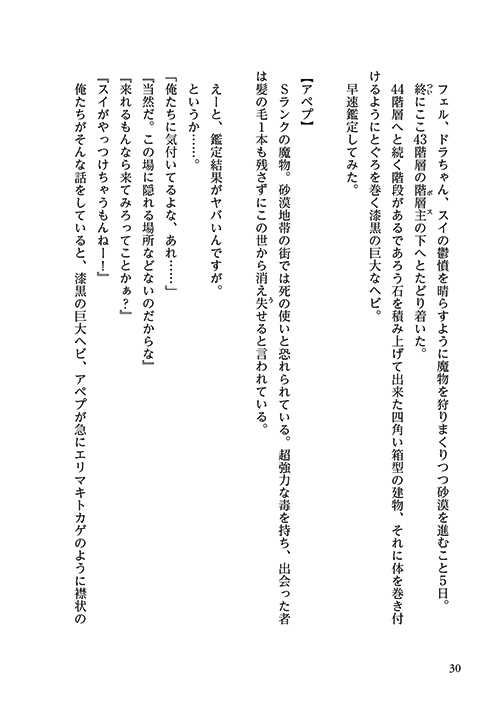 フェル、ドラちゃん、スイの鬱憤を晴らすように魔物を狩りまくりつつ砂漠を進むこと5日。
終にここ43階層の階層主の下へとたどり着いた。
つい
ボス
44階層へと続く階段があるであろう石を積み上げて出来た四角い箱型の建物、それに体を巻き付
けるようにとぐろを巻く漆黒の巨大なヘビ。
早速鑑定してみた。
【アペプ】
Sランクの魔物。砂漠地帯の街では死の使いと恐れられている。超強力な毒を持ち、出会った者
は髪の毛1本も残さずにこの世から消え失せると言われている。
う
えーと、鑑定結果がヤバいんですが。
というか……。
「俺たちに気付いてるよな、あれ……」
『当然だ。この場に隠れる場所などないのだからな』
『来れるもんなら来てみろってことかぁ?』
『スイがやっつけちゃうもんねー!』
俺たちがそんな話をしていると、漆黒の巨大ヘビ、アペプが急にエリマキトカゲのように襟状の
30